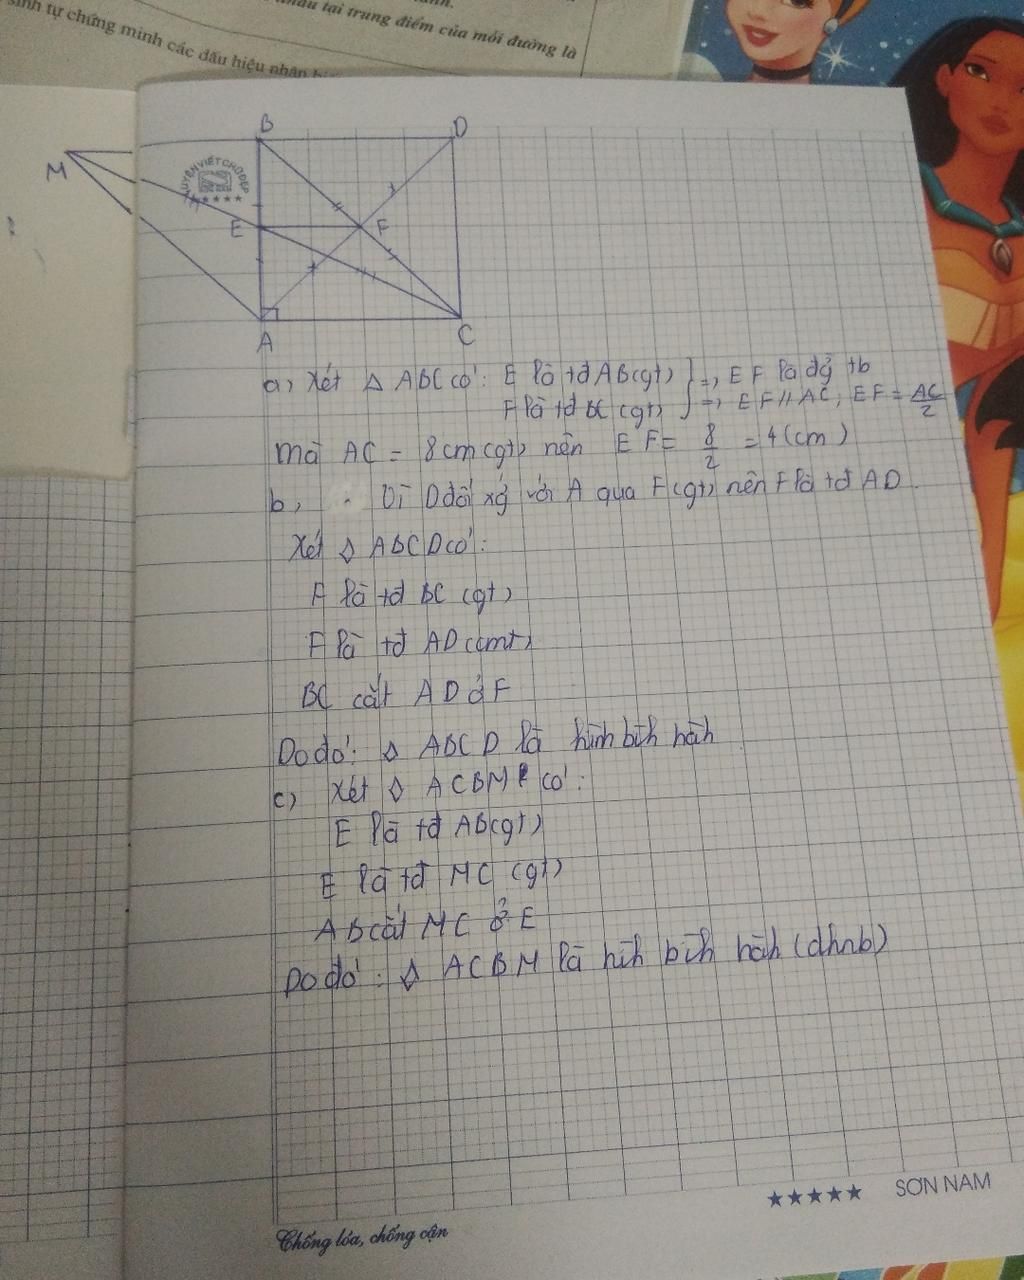 nhau tại trung điểm của mỗi đường là
sinh tự chứng minh các dấu hiệu nhận
B
D
M
LUYỆN VIẾT CHỮ ĐẸP
E
F
A
C
a, Xét Δ ABC có: E là tđ AB(gt) } => EF là đg tb
F là tđ BC (gt) => EF // AC, EF = AC/2
mà AC = 8cm(gt) nên EF = 8/2 = 4(cm)
b, Vì D đối xg với A qua F(gt) nên F là tđ AD.
Xét ◊ ABCD có:
F là tđ BC (gt)
F là tđ AD (cmt)
BC cắt AD ở F
Do đó: ◊ ABCD là hình bình hành
c) Xét ◊ ACBM có:
E là tđ AB(gt)
E là tđ MC (gt)
AB cắt MC ở E
Do đó: ◊ ACBM là hình bình hành (dhnb)
★★★★★ SƠN NAM
Chống lóa, chống cận